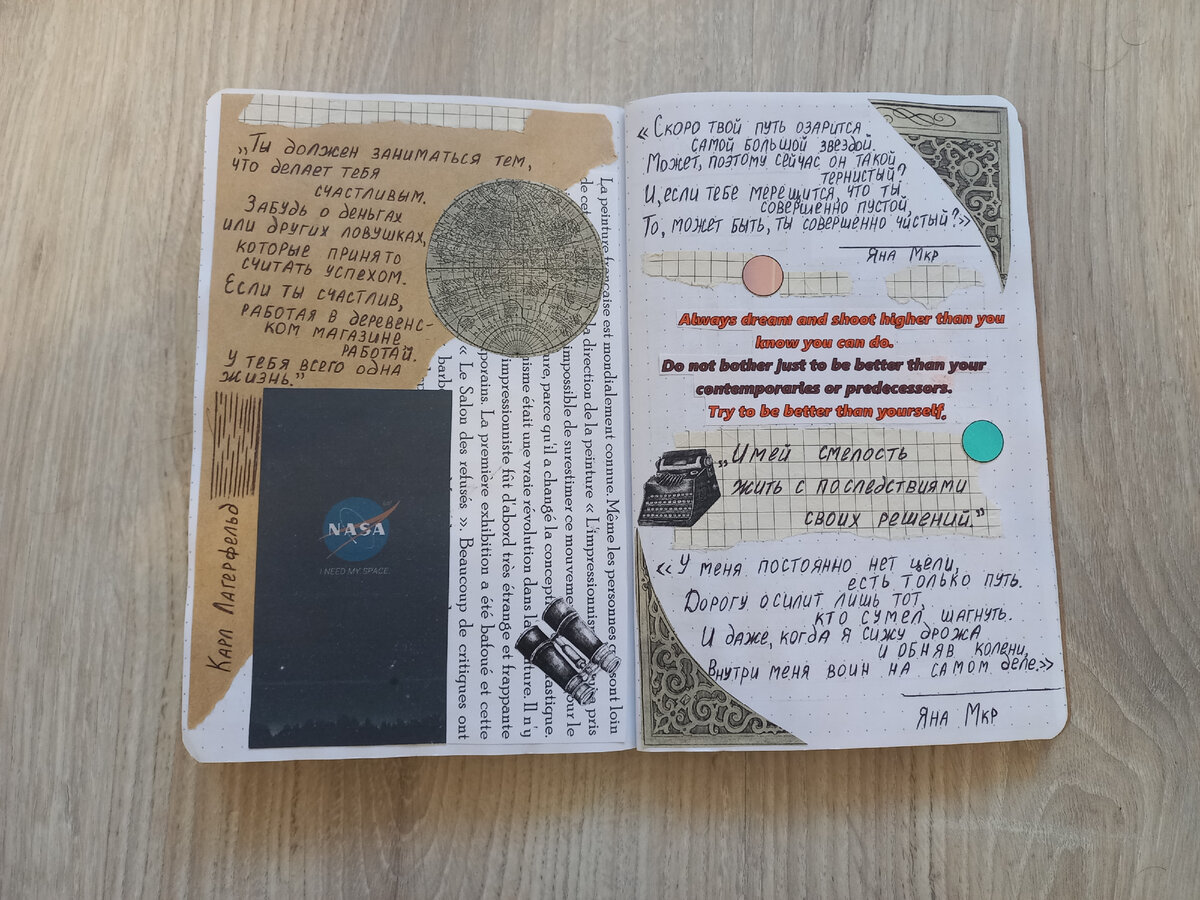 „Ты должен заниматься тем,
что делает тебя
счастливым.
Забудь о деньгах
или других ловушках,
которые принято
считать успехом.
Если ты счастлив,
работая в деревенс-
ком магазине
работай.
у тебя всего одна
жизнь.”
Карл Лагерфельд
NASA
I NEED MY SPACE.
La peinture française est mondialement connue. Même les personnes sont loin
de cet la direction de la peinture « L'impressionnis a pris
impossible de surestimer ce mouveme pour le
ure, parce qu'il a changé la concepti astique,
nisme était une vraie révolution dans la nture. Il n'y
impressionniste fût d'abord très étrange et frappante
porains. La première exhibition a été bafoué et cette
« Le Salon des refusés ». Beaucoup de critiques ont
barb
«Скоро твой путь озарится
самой большой звездой.
Может, поэтому сейчас он такой
тернистый?
И, если тебе мерещится, что ты
совершенно пустой,
То, может быть, ты совершенно чистый?»
Яна Мкр
Always dream and shoot higher than you
know you can do.
Do not bother just to be better than your
contemporaries or predecessors.
Try to be better than yourself.
„Имей смелость
жить с последствиями
своих решений.”
«У меня постоянно нет цели,
есть только путь.
Дорогу осилит лишь тот,
кто сумел шагнуть.
И даже, когда я сижу дрожа
и обняв колени,
Внутри меня воин на самом деле.»
Яна Мкр